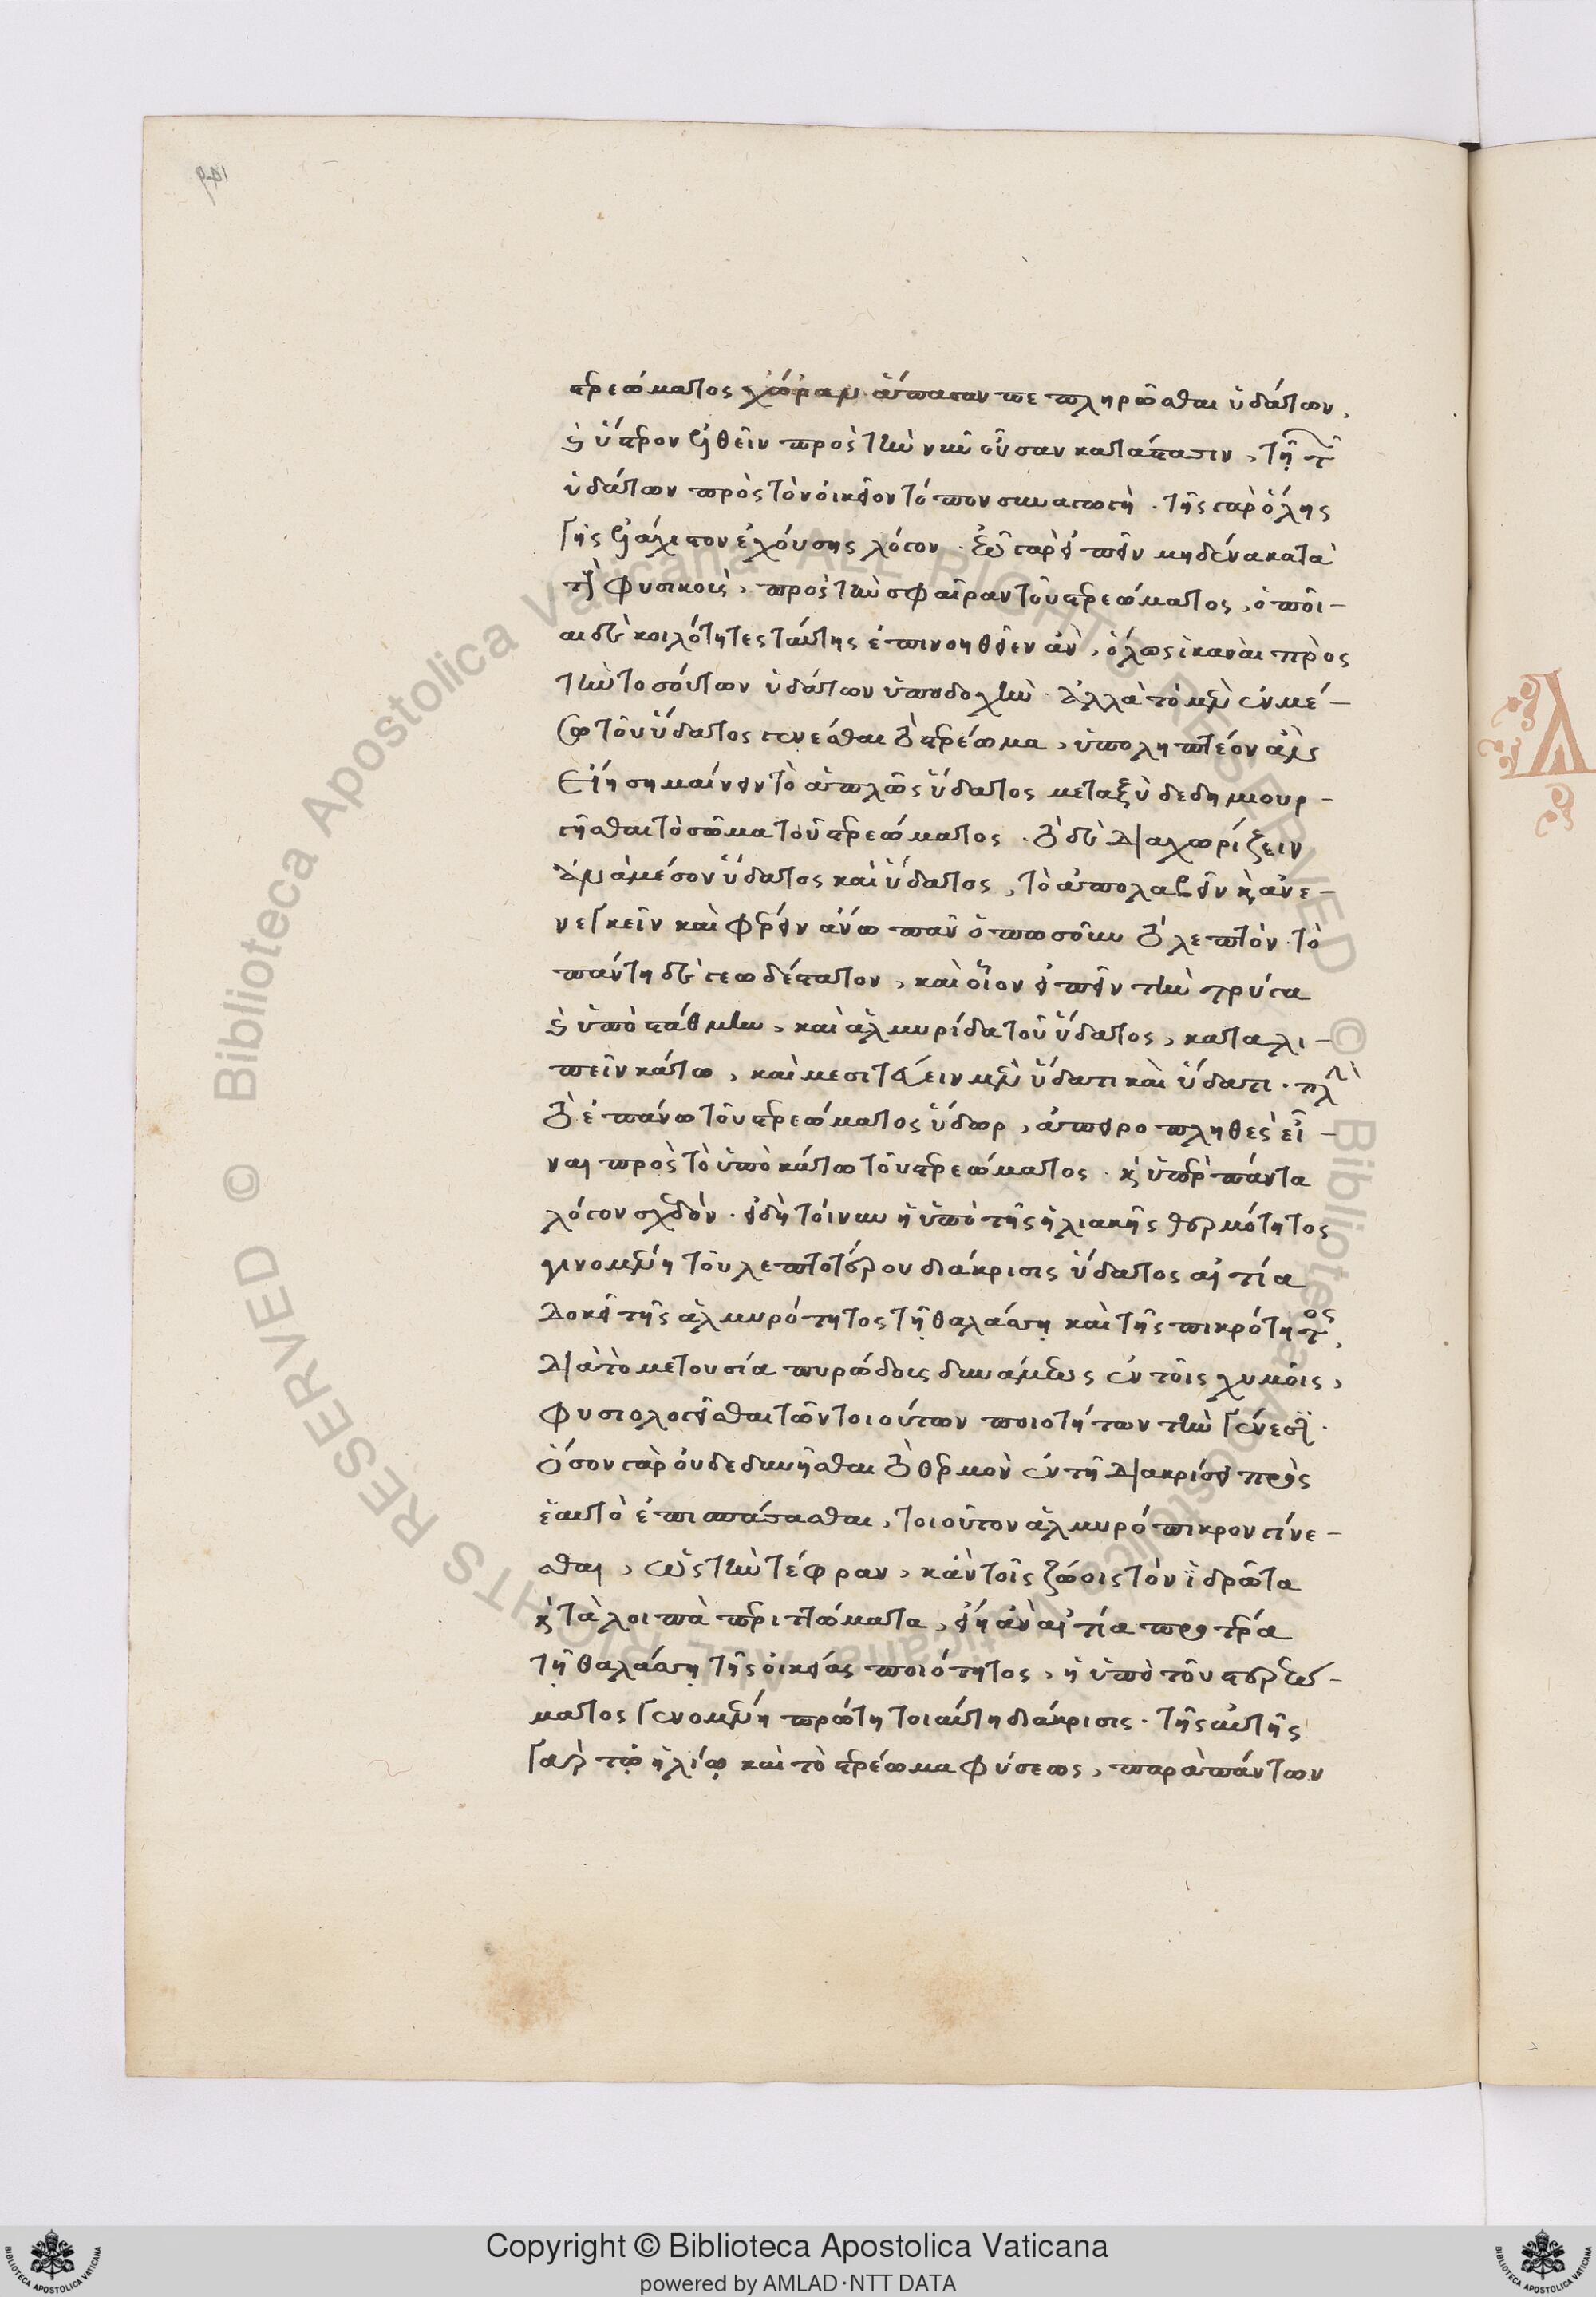 στρεώματος χώραν ἅπασαν πεπληρῶσθαι ὑδάτων,
καὶ ὕστερον ἐλθεῖν πρὸς τὴν νῦν οὖσαν κατάστασιν, τῇ τῶν
ὑδάτων πρὸς τὸν οἰκεῖον τόπον συναγωγῇ. τῆς γὰρ ὅλης
γῆς ἐλάχιστον ἐχούσης λόγον
φυσικοὺς, πρὸς τὴν σφαῖραν τοῦ στερεώματος, ὁποῖ-
αι δὲ κοιλότητες ταύτης ἐπινοηθεῖεν ἂν, ὅλως ἱκαναὶ πρὸς
τὴν τοσούτων ὑδάτων ὑποδοχήν. ἀλλὰ τὸ μὲν ἐν μέ-
σῳ τοῦ ὕδατος γενέσθαι τὸ στερέωμα, ὑποληπτέον
σημαίνειν τὸ ἁπλῶς ὕδατος μεταξὺ δεδημιουρ-
γῆσθαι τὸ σῶμα τοῦ στερεώματος. τὸ δὲ διαχωρίζειν
ἀναμέσον ὕδατος καὶ ὕδατος, τὸ ἀπολαβεῖν καὶ ἀνε-
νεγκεῖν καὶ φέρειν ἄνω πᾶν ὁπωσοῦν τὸ λεπτόν. τὸ
πάντη δὲ γεωδέστατον, καὶ οἷον εἰπεῖν τὴν τρύγα
καὶ ὑποστάθμην, καὶ ἁλμυρίδα τοῦ ὕδατος, καταλι-
πεῖν κάτω, καὶ μεσιτεύειν μὲν ὕδατι καὶ ὕδατι. πλὴν
τὸ ἐπάνω τοῦ στερεώματος ὕδωρ, ἀπειροπληθὲς εἶ-
ναι πρὸς τὸ ὑποκάτω τοῦ στερεώματος. καὶ ὑπὲρ πάντα
λόγον σχεδόν. εἰ δὴ τοίνυν ἡ ὑπὸ τῆς ἡλιακῆς θερμότητος
γινομένη τοῦ λεπτοτέρου διάκρισις ὕδατος αἰτία
δοκεῖ τῆς ἁλμυρότητος τῇ θαλάσσῃ καὶ τῆς πικρότητος,
διὰ τὸ μετουσία πυρώδους δυνάμεως ἐν τοῖς χυμοῖς,
φυσιολογεῖσθαι τῶν τοιούτων ποιοτήτων τὴν γένεσιν.
ὅσον γὰρ οὐ δεδυνῆσθαι τὸ θερμὸν ἐν τῇ διακρίσει πρὸς
ἑαυτὸ ἐπισπάσασθαι, τοιοῦτον ἁλμυρόπικρον γίνε-
σθαι, ὡς τὴν τέφραν, κἀν τοῖς ζώοις τὸν ἱδρῶτα
καὶ τὰ λοιπὰ περιττώματα, εἴη ἂν αἰτία προτέρα
τῇ θαλάσσῃ τῆς οἰκείας ποιότητος, ἡ ὑπὸ τοῦ στερεώ-
ματος γενομένη πρώτη τοιαύτη διάκρισις. τῆς αὐτῆς
γὰρ τῷ ἡλίῳ καὶ τὸ στερέωμα φύσεως, παρὰ πάντων
© Biblioteca Apostolica Vaticana ALL RIGHTS RESERVED
© Biblioteca Apostolica Vaticana ALL RIGHTS RESERVED
Copyright © Biblioteca Apostolica Vaticana
powered by AMLAD·NTT DATA
BIBLIOTECA APOSTOLICA VATICANA
BIBLIOTECA APOSTOLICA VATICANA